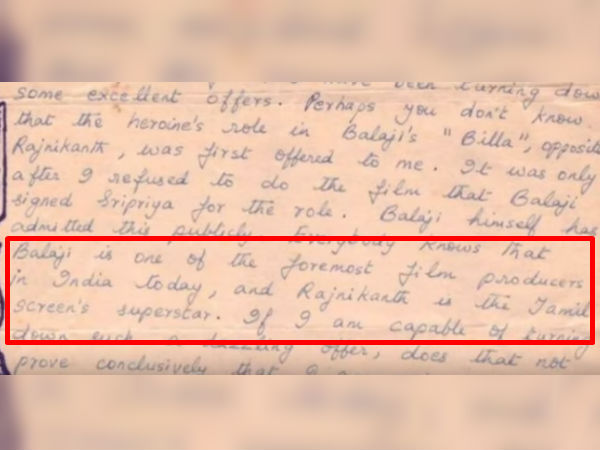 have been turning down
some excellent offers. Perhaps you don't know
that the heroine's role in Balaji's "Billa", opposite
Rajnikanth, was first offered to me. It was only
after I refused to do the film that Balaji
signed Sripriya for the role. Balaji himself has
admitted this publicly. Everybody knows that
Balaji is one of the foremost film producers
in India today, and Rajnikanth is the Tamil
screen's superstar. If I am capable of turning
down such a dazzling offer, does that not
prove conclusively that I